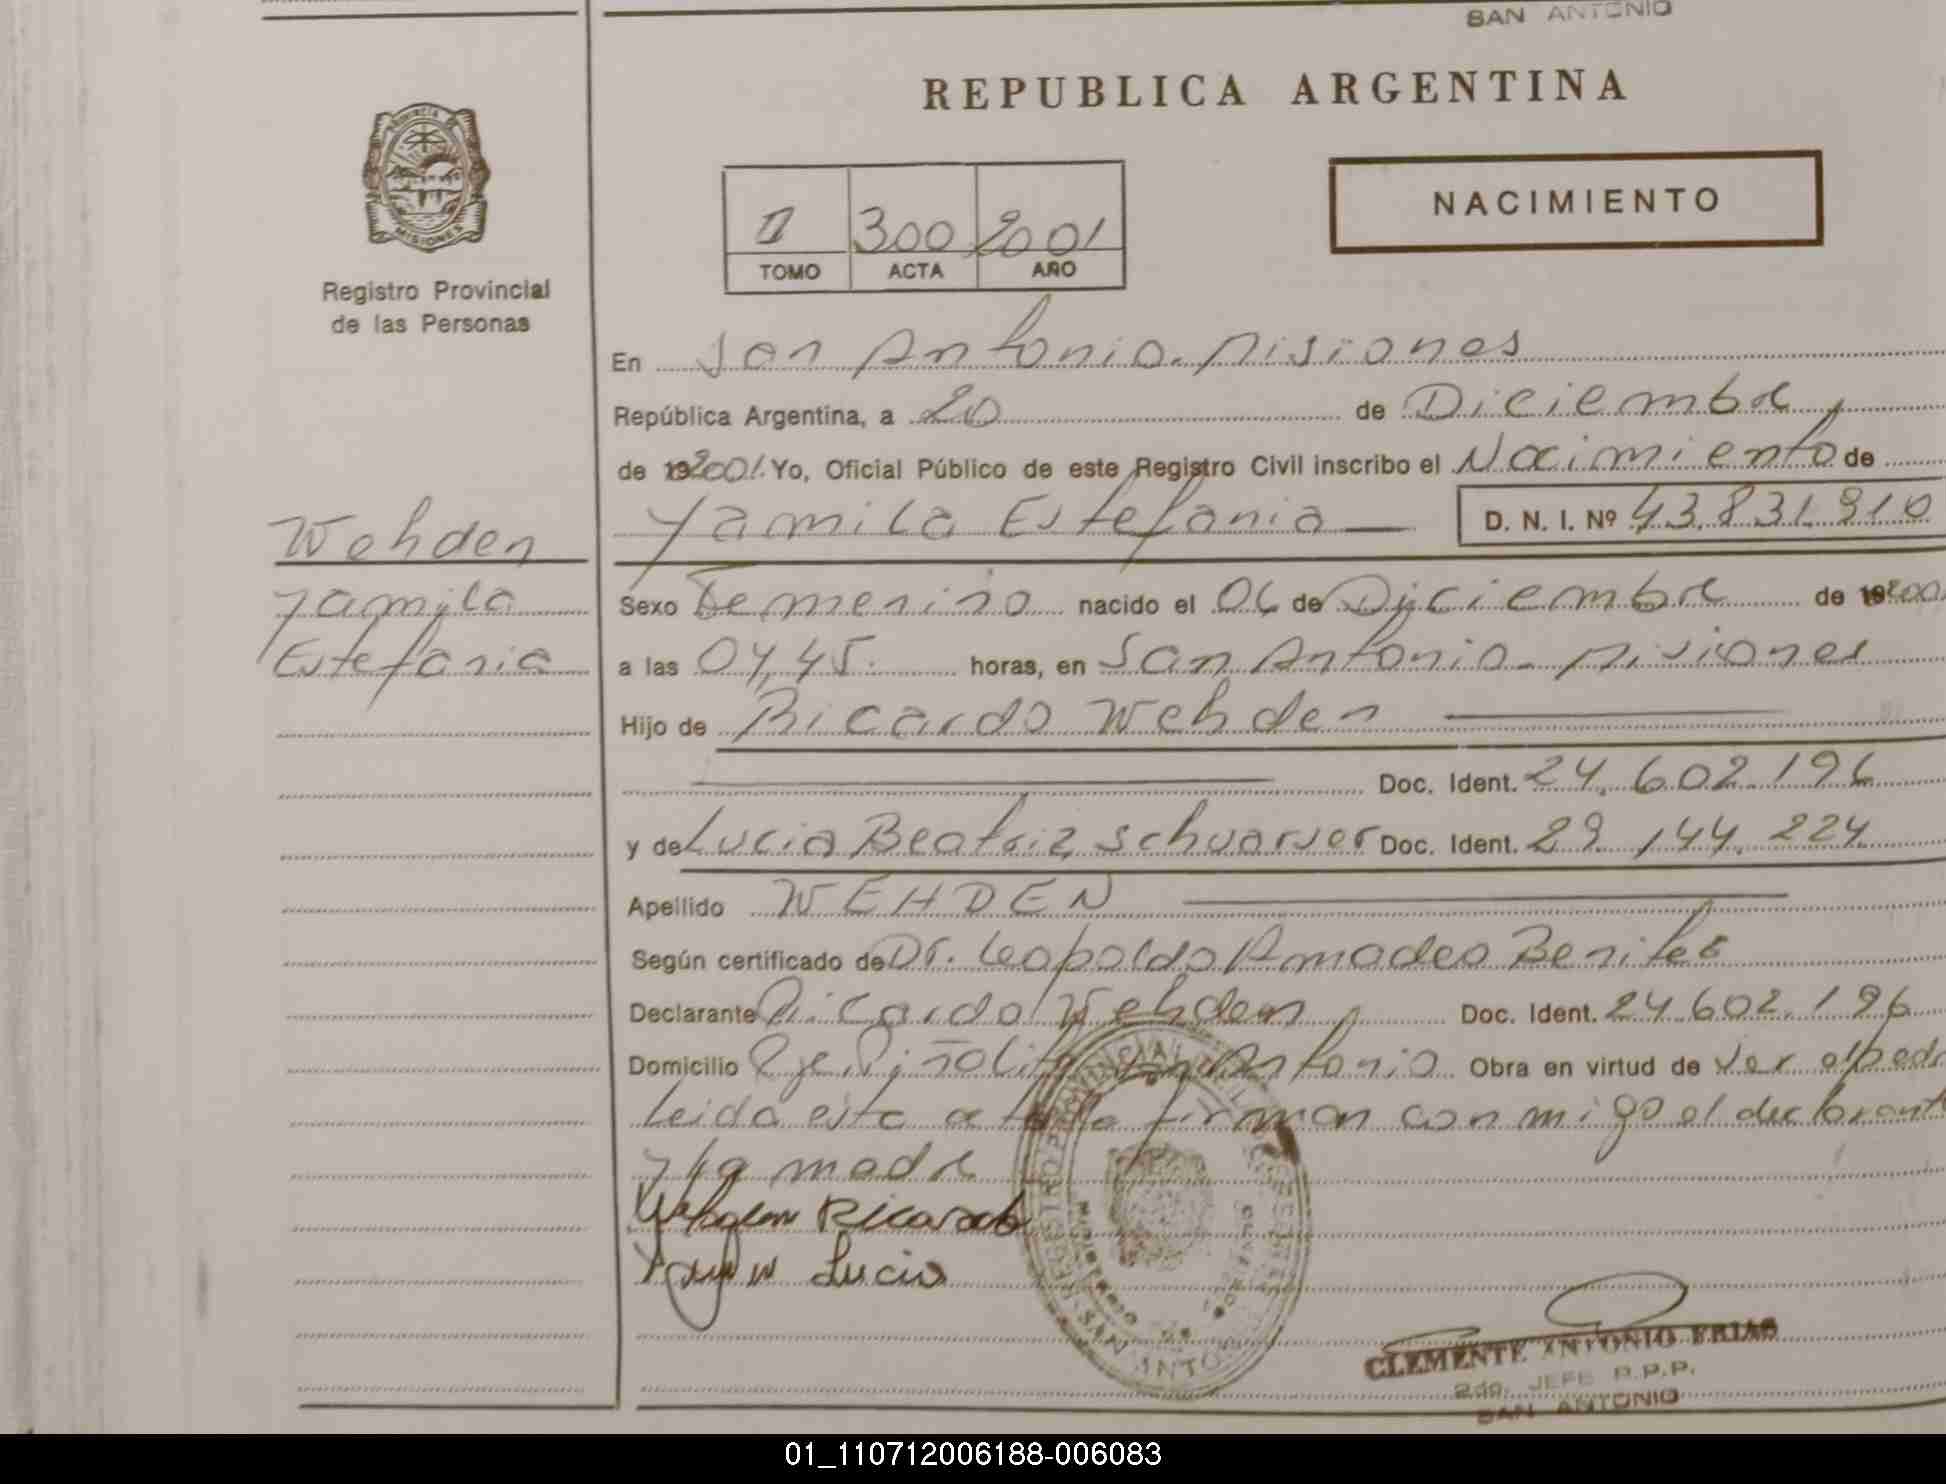 SAN ANTONIO
REPUBLICA ARGENTINA
PROVINCIA DE
MISIONES
Registro Provincial
de las Personas
II 300 2001
TOMO ACTA AÑO
NACIMIENTO
En San Antonio. Misiones
República Argentina, a 20 de Diciembre
de 192001. Yo, Oficial Público de este Registro Civil inscribo el Nacimiento de
Yamila Estefania D. N. I. Nº 43.831.910
Wehden
Yamila
Estefania
Sexo Femenino nacido el 06 de Diciembre de 19200
a las 04,45. horas, en San Antonio - Misiones
Hijo de Ricardo Wehden
Doc. Ident. 24.602.196
y de Lucia Beatriz Schuarser Doc. Ident. 29.144.224.
Apellido WEHDEN
Según certificado de Dr. Leopoldo Amadeo Benites
Declarante Ricardo Wehden Doc. Ident. 24.602.196
Domicilio Antonio Obra en virtud de ver al
Leida esta acta la firman conmigo el declarante
y la madre
Wehden Ricardo
Lucia
SAN ANTONIO
CLEMENTE ANTONIO FRIAS
2do. JEFE R.P.P.
SAN ANTONIO
01_110712006188-006083